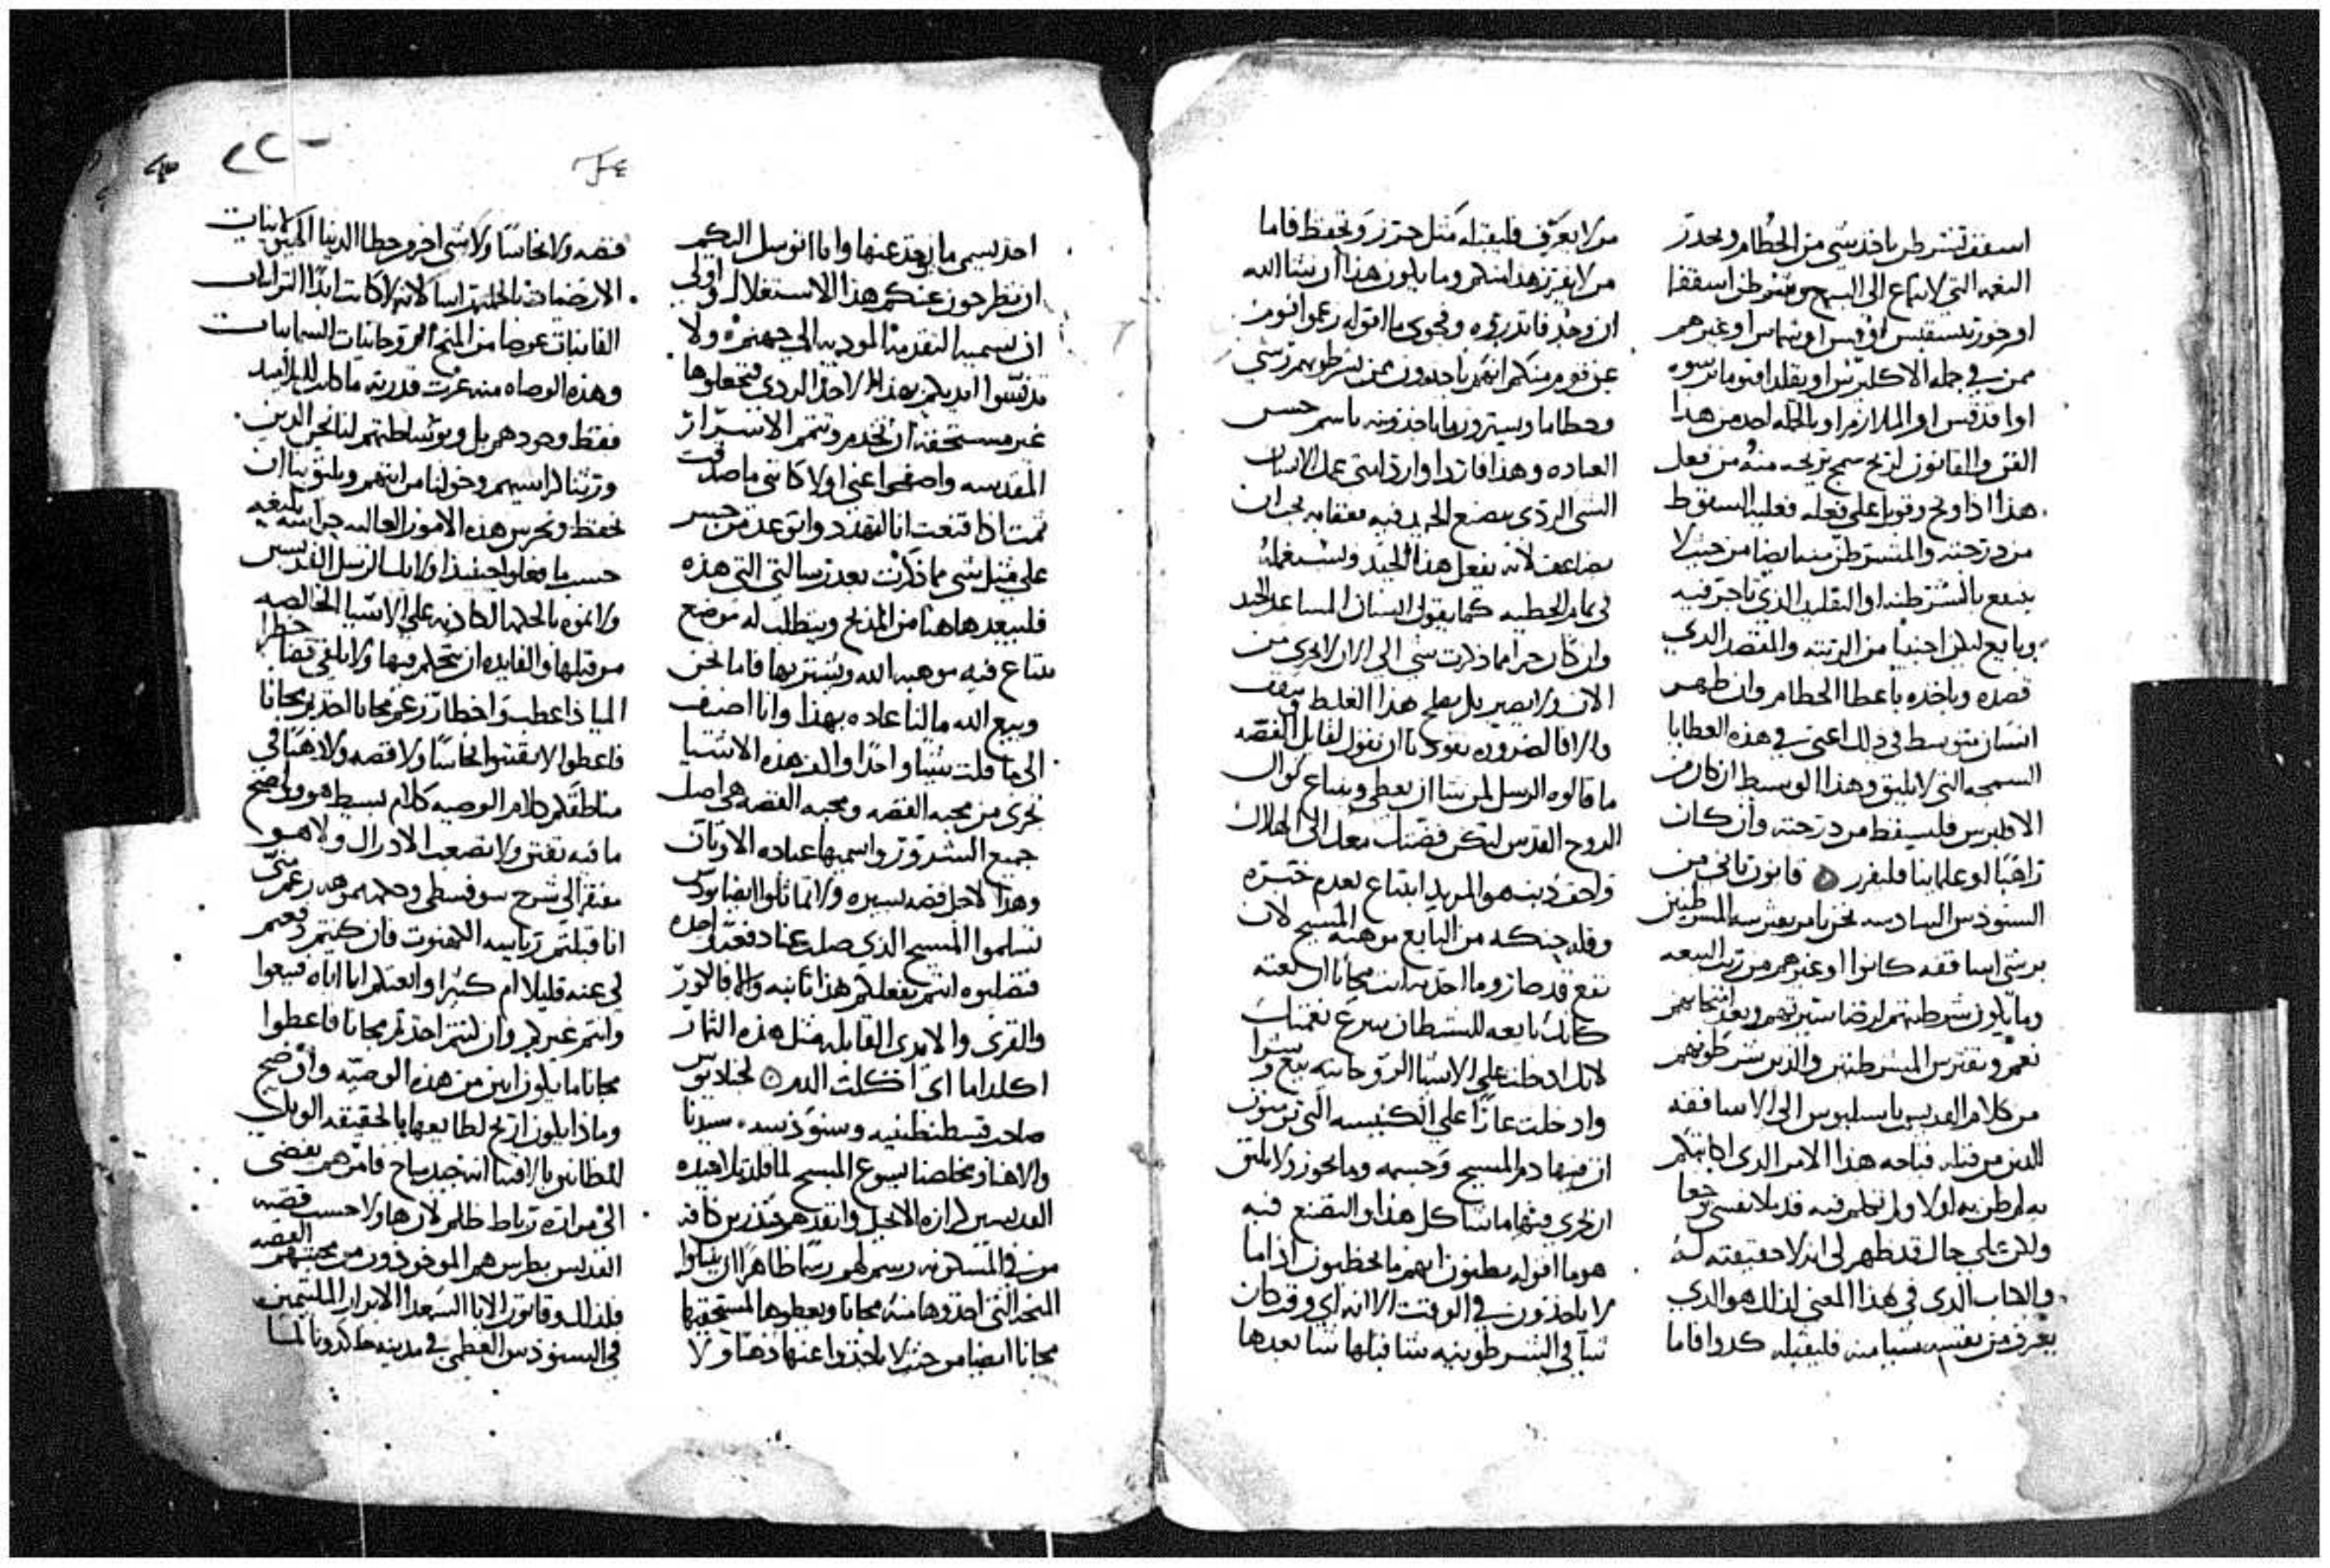 اسقف تشرطن باخذ شي من الحطام ويحدر
النعمه التي لا تباع الى البيع ويشرطن اسقفا
او خورتيسقبس او قس او شماس او غيرهم
ممن في جمله الاكليرس او يقلد اقنوما برشوه
او افدقس او الملازم او بالجمله احد من هذا
الفن والقانون لربح سمج يربحه منه من فعل
هذا اذا وبخ وقوبل على فعله فعليه السقوط
من درجته والمتشرطن منه ايضا من حيث لا
ينتفع بالشرطنه او التقليد الذي تاجر فيه
وبايع ليكن اجنبيا من الرتبه والمقصد الذي
قصده وياخذه باعطا الحطام وان ظهر
انسان متوسط في ذلك اعني في هذه العطايا
السمجه التي لا تليق وهذا الوسيط ان كان من
الاقليرس فليسقط من درجته وان كان
راهبا او علمانيا فليفرز ه قانون ثاني من
السنودس السادسه نحن نامر بعشر سه المشرطنين
برشي اساقفه كانوا او غيرهم من رتب البيعه
وما يكون شرطنتهم لرضا سيرتهم وبعد انتخابهم
نعم وبفترس المشرطنين والذين شرطونهم
من كلام القديس باسيليوس الى الاساقفه
الذين من قبله قباحه هذا الامر الذي اكاتبكم
به لم يظن به اولا ولم يتكلم فيه قد بلا نفسي وجعا
ولكن على حال قد ظهر لي انه لا حقيقه له
والكتاب الذي في هذا المعنى لذلك هو الذي
يعرف من نفسه شيا منه فليقبله كدوا فاما
من لا يعرف فليقبله كمثل حترز وتحفظ فاما
من لا يفرز هذا منكم وما يكون هذا ان شا الله
ان وجد فاتدروه وفحوى ما اقوله زعموا قوم
عن قوم منكم انهم ياخدون ممن يشرطونهم رشي
وحطاما ويسترون ما ياخذونه باسم حسن
العباده وهذا فازدا واردا متى عمل الانسان
الشي الردي بصنع الخير فيه فعقابه يجب ان
يضاعف لانه يفعل هذا الجيد ويستعمله
في تمام الخطيه كما يقول انسان المساعد الجيد
وان كان جرا مما ذكرت شي الى الان لا يجري من
الان ولا يصير بل يصلح هذا الغلط ويقف
والا فالضروره تقود نا ان نقول لقابل الفضه
ما قالوه الرسل لمن شا ان يعطي ويبتاع نوال
الروح القدس لتكن فضتك معك الى الهلاك
واخف ذنبا هو المريد ابتاع لعدم خبره
وقله حنكه من البايع موهبه المسيح لان
بيع قد صار وما اخذته انت مجانا ان بعته
كانك بايعه للشيطان يبرع نعمتك
لانك ادخلت على الاشيا الروحانيه بيع وشرا
وادخلت عارا على الكنيسه التي ترسون
ان فيها دم المسيح وجسمه وما يجوز ولا يليق
ان يجري فيها ما شا كل هذا والتصنع فيه
هو ما اقوله يظنون انهم ما يخطيون اذا ما
لا ياخذون في الوقت الا انه اي وقت كان
شيا في الشرطونيه شا قبلها شا بعدها
٢٢٠
احد يسمي ما يوخذ عنها وانا اتوسل اليكم
ان تطرحون عنكم هذا الاستغلال واولى
ان يسميه التقدمه المودیه الى جهنم ولا
تدنسوا ايديكم بهذا الاخذ الردي فتجعلوها
غير مستحقه ان تخدم وتتمم الاسرار
المقدسه واصفحوا عني اولا كاني ما صدقت
ثمت اذا قنعت انا اتهدد واتوعد من جسر
على مثل شي مما ذكرت بعد رسالتي التي هذه
فليبعد هاهنا من المذبح ويتطلب له موضع
يبتاع فيه موهبه الله ويشتريها فاما نحن
وبيع الله ما لنا عاده بهذا وانا اضيف
الى ما قلت شيا واحدا والذ هذه الاشيا
تجري من محبه الفضه ومحبه الفضه هي اصل
جميع الشرور واسمها عباده الاوثان
وهذا لاجل فضه يسيره ولا تماثلوا ايضا يودس
تسلموا المسيح الذي صلب عنا دفعه واحده
فتصلبوه انتم بفعلكم هذا ثانيه والا فالكور
والقرى والايدي القابله مثل هذه الثمار
اكلداما اي اكلت الدم ه لجناديوس
صاحب قسطنطينيه وسنودسه سيدنا
والاهنا ومخلصنا يسوع المسيح لما قلد تلاميذه
القديسين كرازه الانجيل وانفدهم منذرين كافه
من في المسكونه رسم لهم رسما ظاهرا ان ينيلوا
المنحه التي اخذوها منه مجانا ويعطوها لمستحقيها
مجانا ايضا من حيث لا ياخذوا عنها ذهبا ولا
فضه ولا نحاسا ولا شي اخر وحطا الدنيا الهيوليانيات
الارضيات بالجمله راسا لانه لا كانت ابدا الترابيات
الفانيات عوضا من المنح الروحانيات السمائيات
وهذه الوصاه منه عرت قدرته ما كانت للتلاميذ
فقط وحدهم بل وبوساطتهم لنا نحن الذين
ورثنا كراسيهم وخولنا مراتبهم ويليق بنا ان
نحفظ ونحرس هذه الامور العاليه حراسه بليغه
حسب ما فعلوا حينيذ اوليك الرسل القديسين
ولا نموه بالحكمه الكاذبه على الاشيا الخالصه
من قبلها والفايده ان نتحكم فيها ولا يلقى قضا
خطرا
اليا ذا عطب واخطار زعم مجانا اخذتم مجانا
فاعطوا لا تقتنوا نحاسا ولا فضه ولا ذهبا في
مناطقكم كلام الوصيه كلام بسيط هو وواضح
ما فيه تفتن ولا يصعب الادراك ولا هو
مفتقر الى شرح سوفسطي وحكمه موهه زعم متى
انا قبلتم رياسه الكهنوت فان كنتم دفعتم
لي عنه قليلا ام كثيرا وابعتكم انا اياه فبيعوا
وانتم غيركم وان كنتم اخذتم مجانا فاعطوا
مجانا ما يكون ابين من هذه الوصيه واوضح
وماذا يكون اربح لطايعها بالحقيقه الويل
للظانين بالاقتنا انه جيد مباح فامرهم يفضي
الى مراره رباط ظلم لان هاولا حسب قضيه
القديس بطرس هم الموخوذون من محبتهم الفضه
فلذلك وقانون الابا السعدا الابرار الملتيمين
في السنودس العظمى في مدينه خلكدونا لمسا